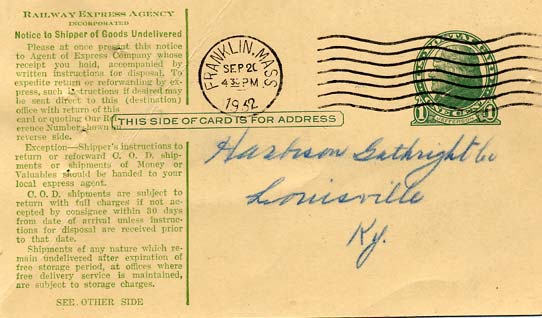 RAILWAY EXPRESS AGENCY
INCORPORATED
Notice to Shipper of Goods Undelivered
Please at once present this notice
to Agent of Express Company whose
receipt you hold, accompanied by
written instructions for disposal. To
expedite return or reforwarding by ex-
press, such instructions if desired may
be sent direct to this (destination)
office with return of this
card or quoting Our Ref
erence Number shown
reverse side.
Exception—Shipper's instructions to
return or reforward C. O. D. ship-
ments or shipments of Money or
Valuables should be handed to your
local express agent.
C. O. D. shipments are subject to
return with full charges if not ac-
cepted by consignee within 30 days
from date of arrival unless instruc-
tions for disposal are received prior
to that date.
Shipments of any nature which re-
main undelivered after expiration of
free storage period, at offices where
free delivery service is maintained,
are subject to storage charges.
SEE OTHER SIDE
FRANKLIN, MASS
SEP 20
4 30 PM
1932
THIS SIDE OF CARD IS FOR ADDRESS
1 JEFFERSON 1
Harbison Gathright Co
Louisville
Ky.